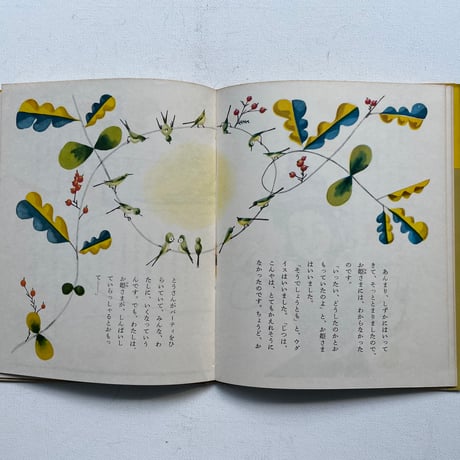 あんまり、しずかにはいって
きて、そっととまりましたので、
お姫さまには、わからなかった
のです。
「いったい、どうしたのかとお
もっていたのよ」と、お姫さま
はいいました。
「そうでしょうとも」と、ウグ
イスはいいました。「じつは、
こんやは、とてもかえれそうに
なかったのです。ちょうど、お
とうさんがパーティをひ
らいていて、みんな、わ
たしに、いくなっていう
んです。でも、わたしは、
お姫さまが、しんぱいし
ていらっしゃるとおもっ
て――。